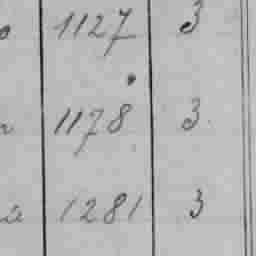 1127 3
1178 3.
a 1281 3